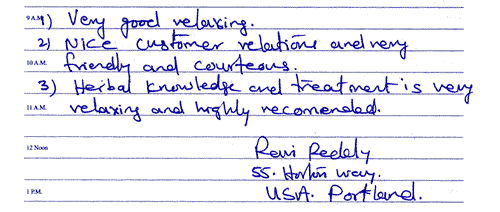 9 A.M. 1) Very good relaxing.
2) Nice customer relations and very
10 A.M. friendly and courteous.
3) Herbal knowledge and treatment is very
11 A.M. relaxing and highly recomended.
12 Noon Reddy
55. way.
1 P.M. USA. Portland.